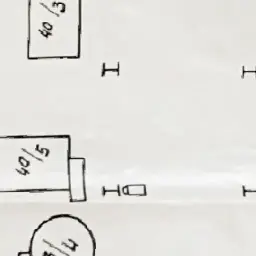 40/3
40/5
/4